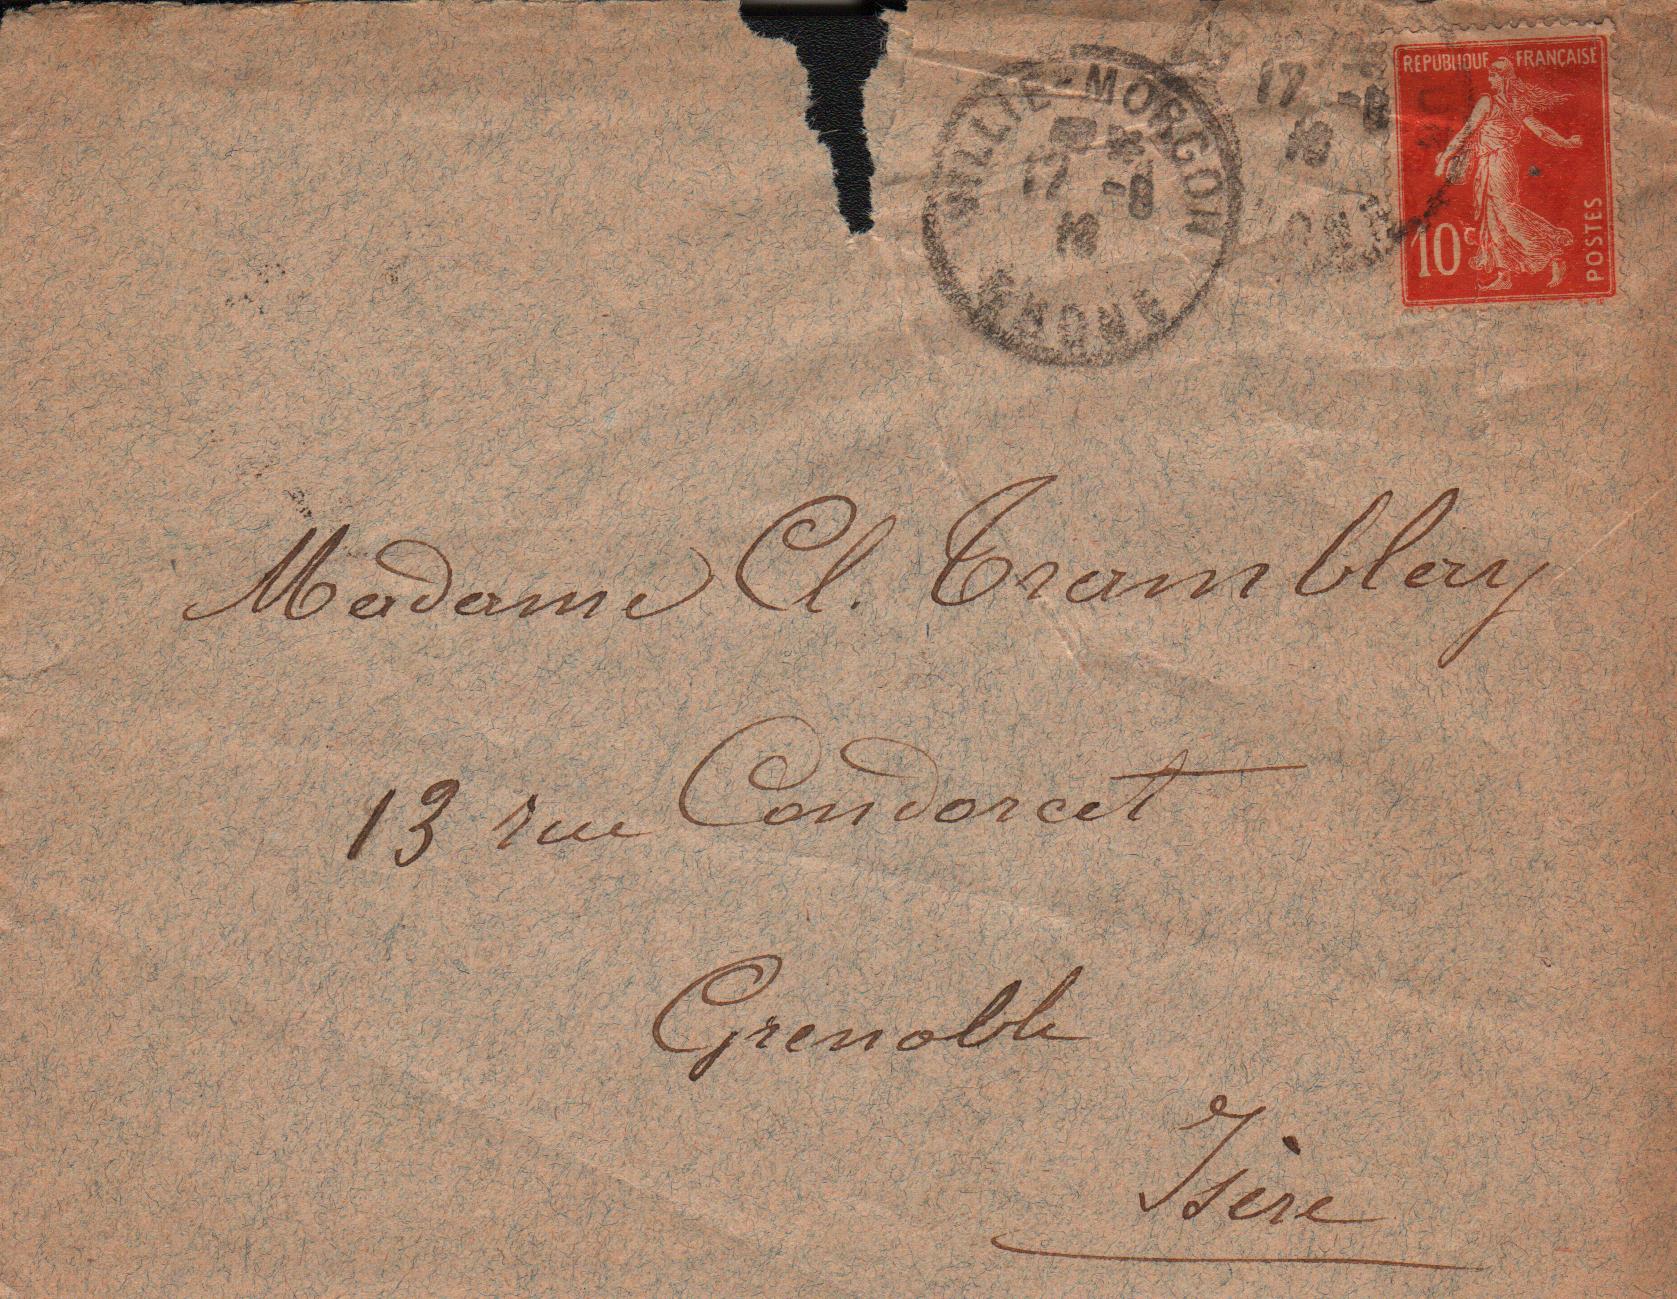 VILLIE-MORGON
17 -8
16
RHONE
17 -8
16
REPUBLIQUE FRANÇAISE
10c
POSTES
Madame Cl. Tramblay
13 rue Condorcet
Grenoble
Isère